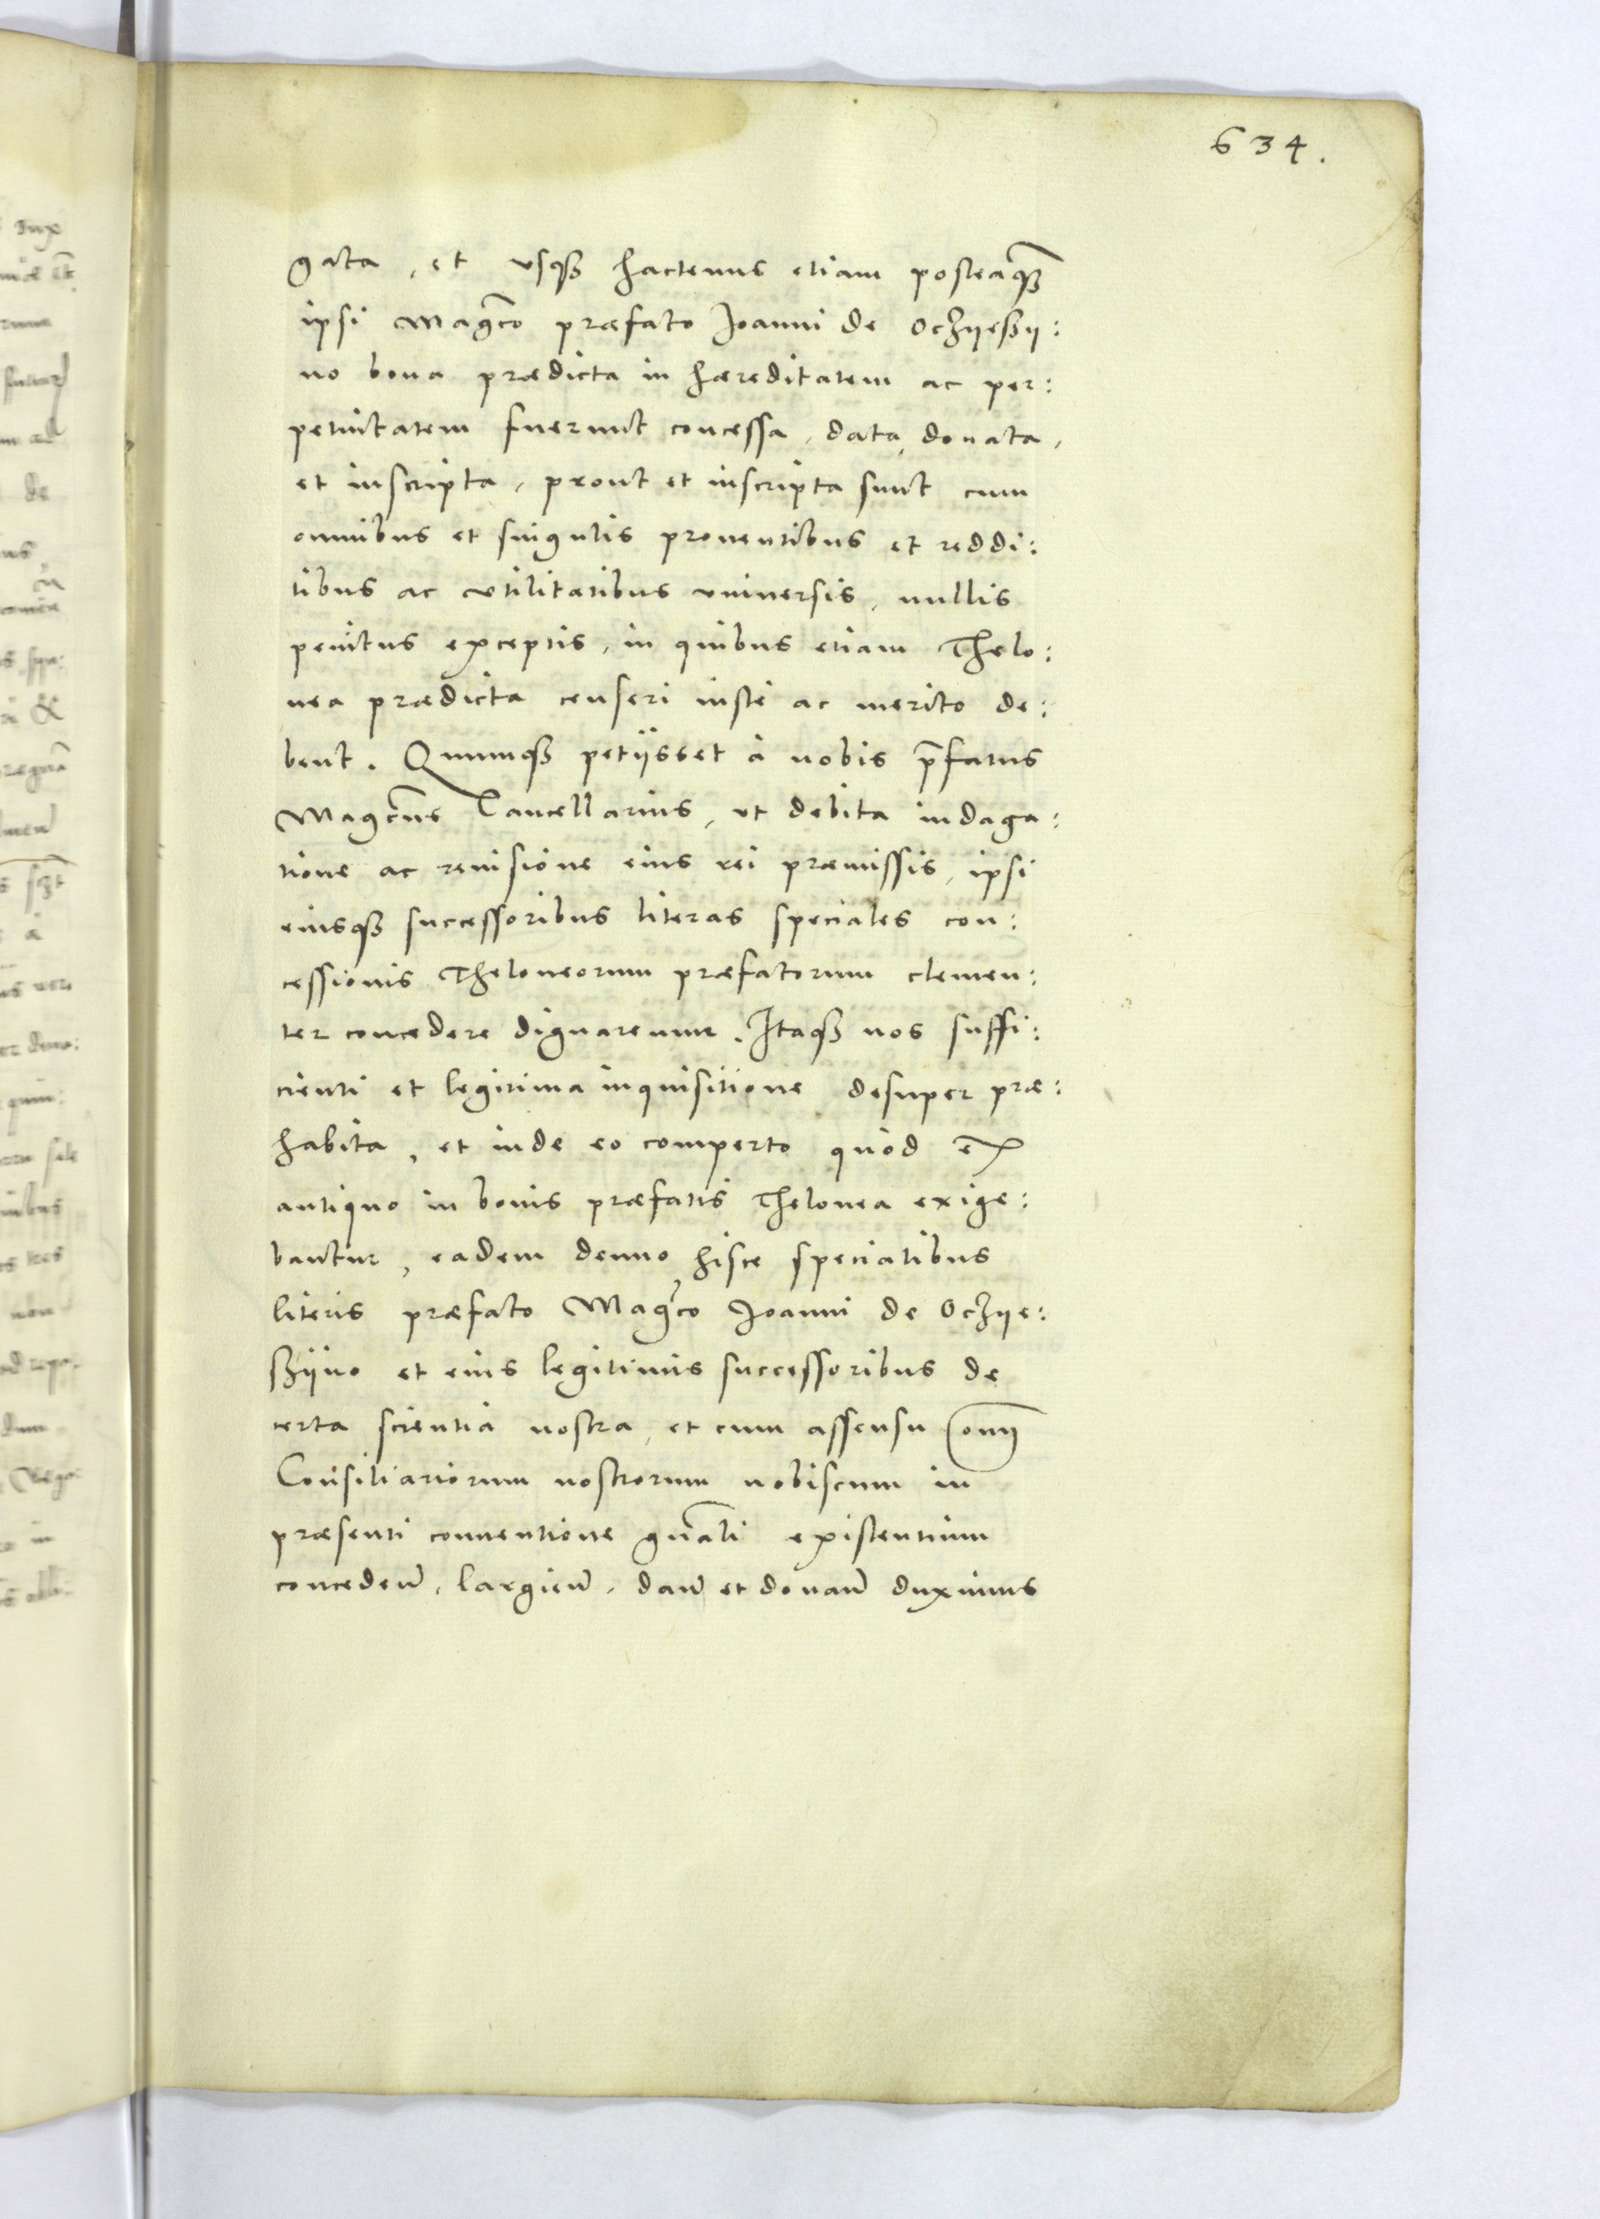 634.
gata, et vsq3 hactenus etiam posteaq̃3
ipsi Magc̃o præfato Joanni de Ocżyeſßy:
no bona prædicta in hæreditatem ac per:
petuitatem fuerunt concessa, data, donata,
et inscripta, prout et inscripta sunt cum
omnibus et singulis prouentibus et reddi:
tibus ac vtilitatibus vniuersis, nullis
penitus exceptis, in quibus etiam Thelo:
nea prædicta censeri iuste ac merito de:
bent. Quumq3 petijsset à nobis p̃fatus
Magc̃us Cancellarius, ut debita indaga:
tione ac reuisione eius rei præmissis, ipsi
eiusq3 successoribus literas speciales con:
cessionis Theloneorum præfatorum clemen:
ter concedere dignaremur. Itaq3 nos suffi:
cienti et legitima inquisitione desuper præ:
habita, et inde eo comperto quòd ex
antiquo in bonis præfatis Thelonea exige:
bantur, eadem denuo hisce specialibus
literis præfato Magc̃o Joanni de Oczye:
szyno et eius legitimis successoribus de
certa scientia nostra, et cum assensu om̃
Consiliariorum nostrorum nobiscum in
præsenti conuentione gñali existentium
conceden̄, largien̄, dan̄ et donan̄ duximus